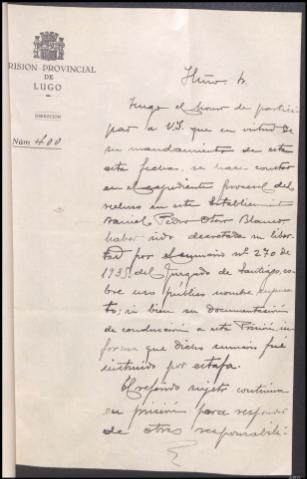 PRISION PROVINCIAL
DE
LUGO
DIRECCION
Núm 400
Iltmo Sr.
Tengo el honor de partici
par a V.I. que en virtud de
su mandamiento de esta
fecha, se hace constar
en el expediente procesal del
recluso en este Establecimiento
Daniel Pedro Otero Blanco
haber sido decretada su liber
tad por el sumario nº 270 de
1935 del Juzgado de Santiago, so
bre uso público nombre supues
to; si bien su documentación
de conducción a esta Prisión in
forma que dicho sumario fué
instruido por estafa.
El referido sujeto continúa
en prisión para responder
de otras responsabili-